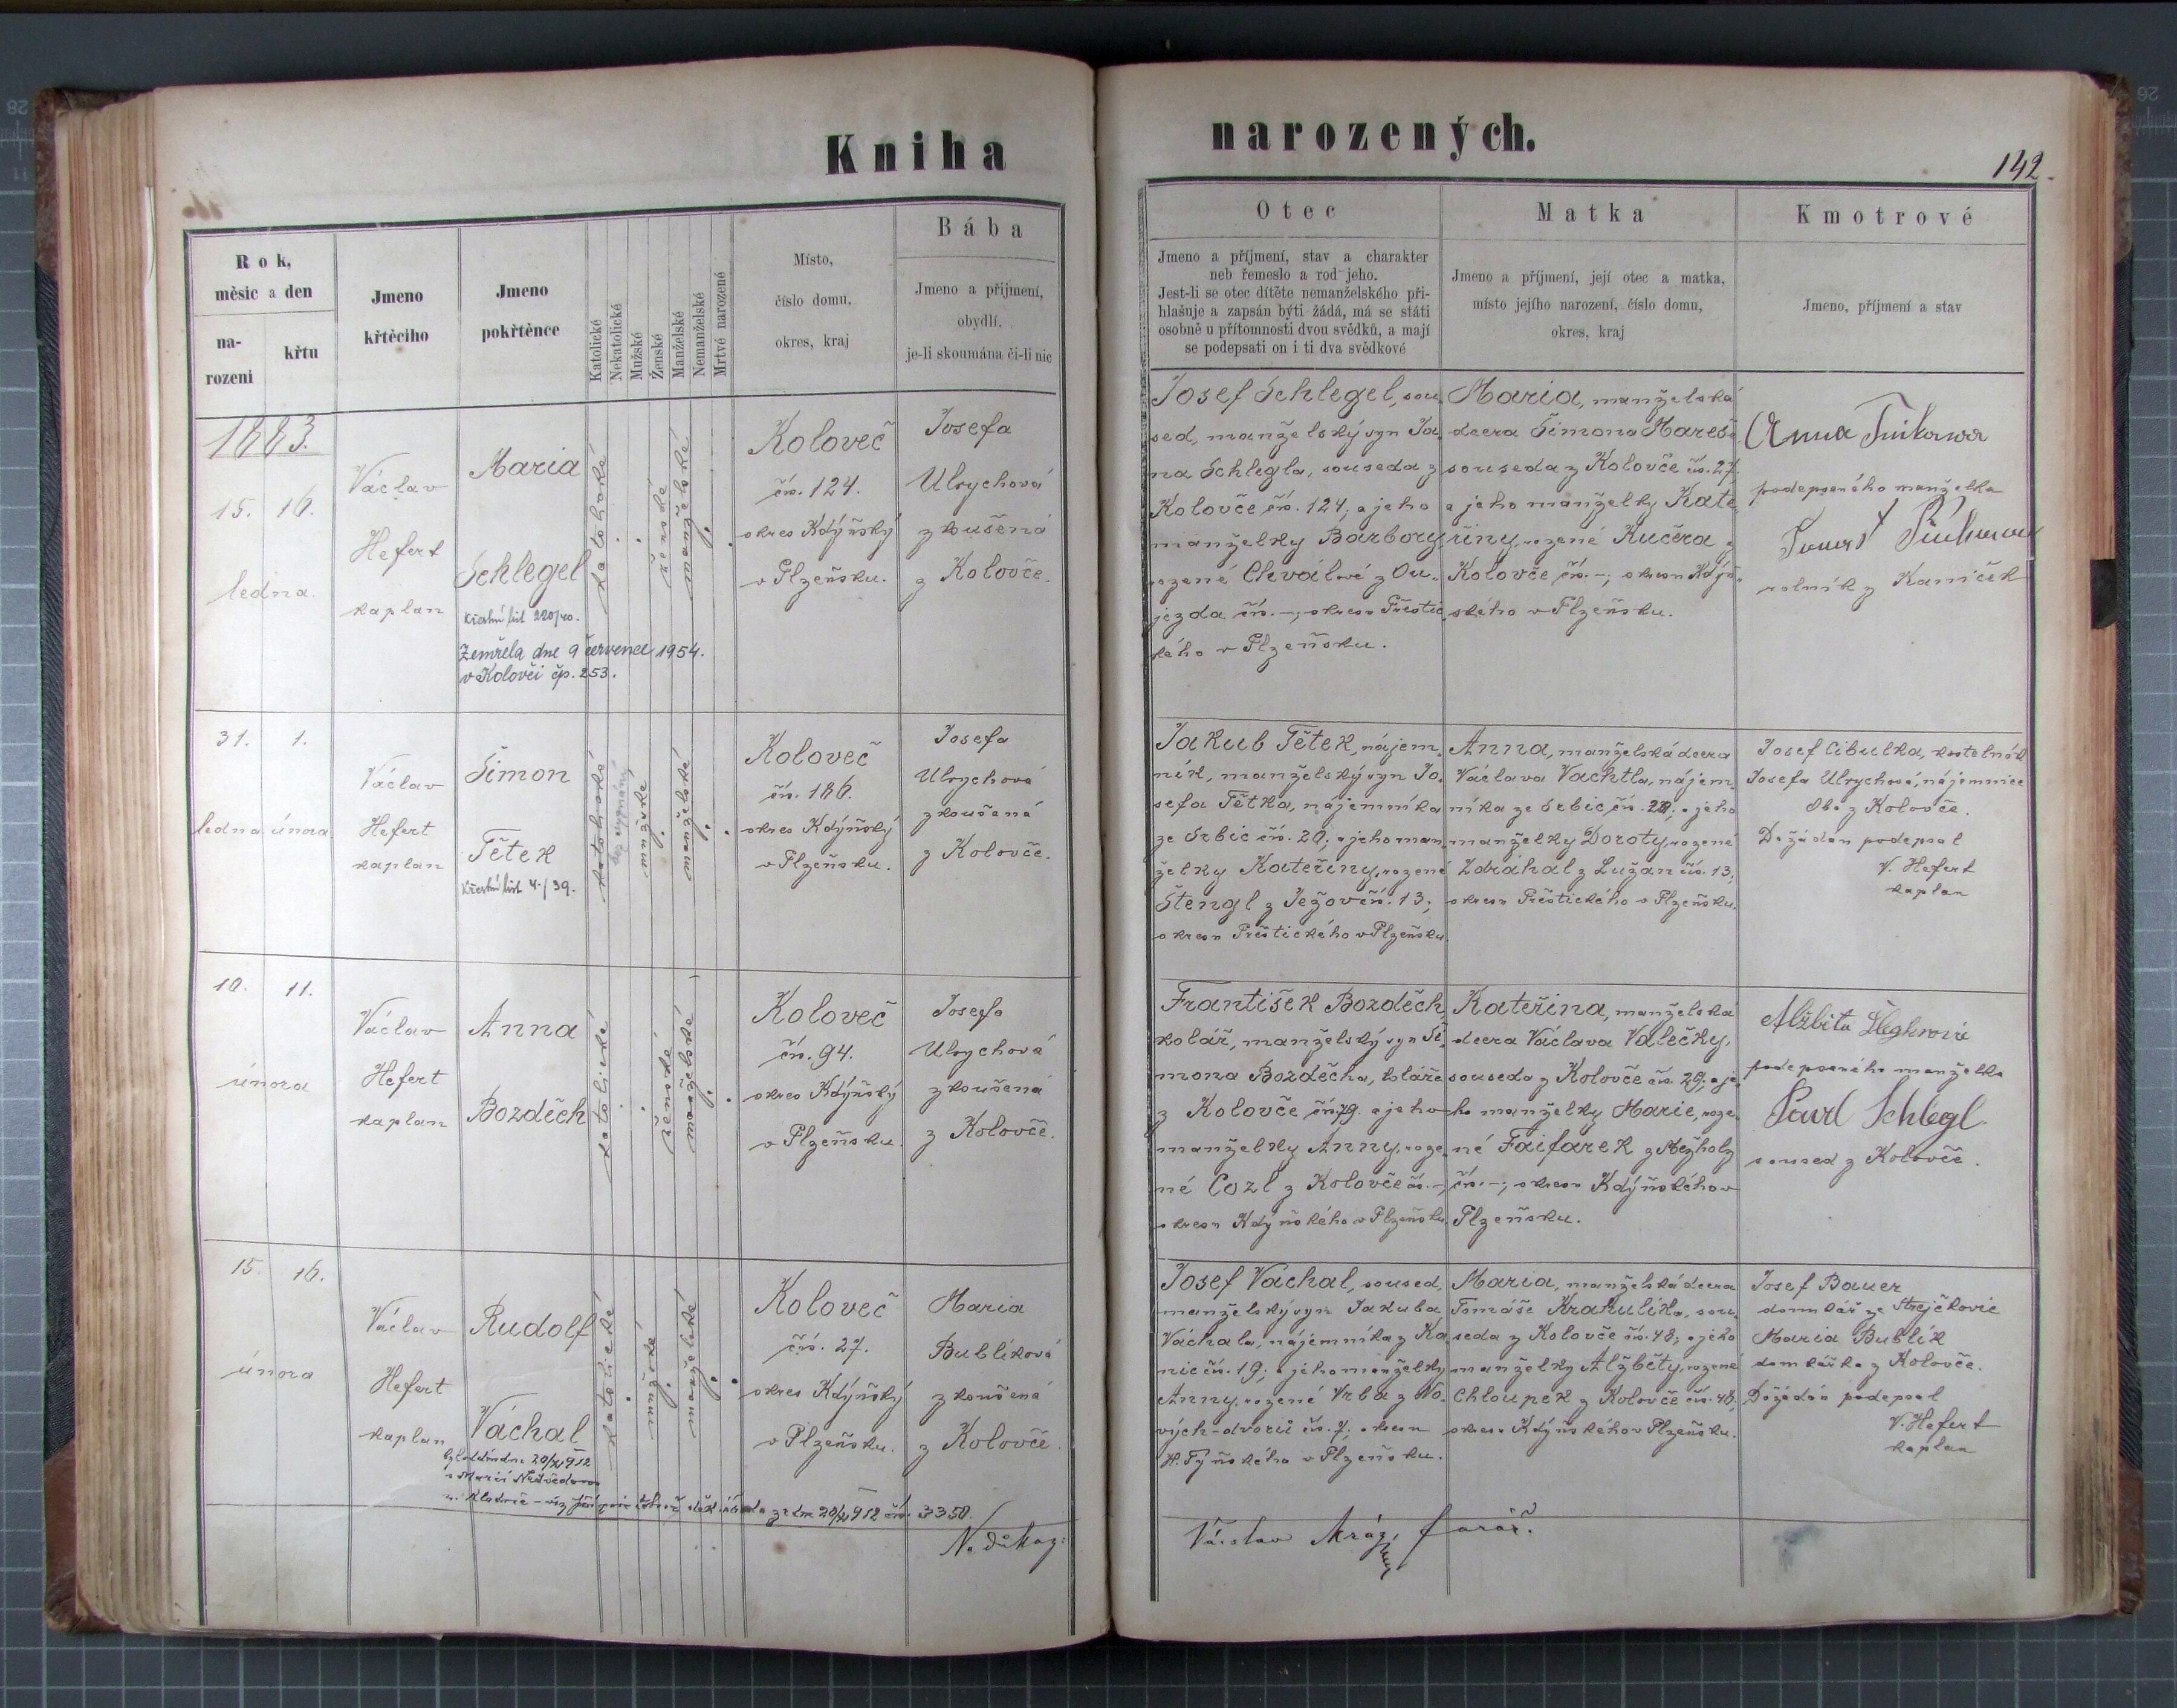 Kniha
narozených.
142.
Rok,
měsíc a den
na-
rozeni
křtu
Jmeno
křtěcího
Jmeno
pokřtěnce
Katolické
Nekatolické
Mužské
Ženské
Manželské
Nemanželské
Mrtvé narozené
Místo,
číslo domu,
okres, kraj
Bába
Jmeno a přijmení,
obydlí,
je-li skoumána čí-li nic
Otec
Jmeno a příjmení, stav a charakter
neb řemeslo a rod jeho.
Jest-li se otec dítěte nemanželského při-
hlašuje a zapsán býti žádá, má se státi
osobně u přítomnosti dvou svědků, a mají
se podepsati on i ti dva svědkové
Matka
Jmeno a příjmení, její otec a matka,
místo jejího narození, číslo domu,
okres, kraj
Kmotrové
Jmeno, příjmení a stav
1883.
15. 16.
ledna.
Václav
Hefert
kaplan
Maria
Schlegel
Křestní list 220/40.
Zemřela dne 9 července 1954.
v Kolovči čp. 253.
katolické
ženské
manželské
Koloveč
čís. 124.
okres Kdýňský
v Plzeňsku.
Josefa
Ulrychová
zkušená
z Kolovče.
Josef Schlegel, sou-
sed, manželský syn Ja-
na Schlegla, souseda z
Kolovče čís. 124; a jeho
manželky Barbory,
rozené Chválové z Ou-
jezda čís. -; okresu Přeštic-
kého v Plzeňsku.
Maria, manželská
dcera Šimona Mareše
souseda z Kolovče čís. 27.
a jeho manželky Kate-
řiny, rozené Kučera z
Kolovče čís. -; okresu Kdýň-
ského v Plzeňsku.
Anna
podepsaného manželka
rolník z Kaniček
31. 1.
ledna února
Václav
Hefert
kaplan
Šimon
Tětek
Křestní list 4./39.
katolické
mužské
manželské
Koloveč
čís. 186.
okres Kdýňský
v Plzeňsku.
Josefa
Ulrychová
zkoušená
z Kolovče.
Jakub Tětek, nájem-
ník, manželský syn Jo-
sefa Tětka, nájemníka
ze Srbic čís. 20; a jeho man-
želky Kateřiny, rozené
Štengl z Ježov čís. 13;
okresu Přeštického v Plzeňsku.
Anna, manželská dcera
Václava Vachtla, nájem-
níka ze Srbic čís. 28; a jeho
manželky Doroty, rozené
Zdráhal z Lužan čís. 13;
okresu Přeštického v Plzeňsku.
Josef Cibulka, kostelník
Josefa Ulrychová, nájemnice
Oba z Kolovče.
Dožádán podepsal
V. Hefert
kaplan
10. 11.
února
Václav
Hefert
kaplan
Anna
Bozděch
katolické
ženské
manželské
Koloveč
čís. 94.
okres Kdýňský
v Plzeňsku.
Josefa
Ulrychová
zkoušená
z Kolovče.
František Bozděch,
kolář, manželský syn Ši-
mona Bozděcha, koláře
z Kolovče čís. 79. a jeho
manželky Anny, roze-
né Cozl z Kolovče čís. -,
okresu Kdýňského v Plzeňsku.
Kateřina, manželská
dcera Václava Valečky,
souseda z Kolovče čís. 29; a je-
ho manželky Marie, roze-
né Faifarek z Mezholz
čís. -; okresu Kdýňského v
Plzeňsku.
Alžbita
podepsaného manželka
Pavel Schlegl
soused z Kolovče.
15. 16.
února
Václav
Hefert
kaplan
Rudolf
Váchal
katolické
mužské
manželské
Koloveč
čís. 27.
okres Kdýňský
v Plzeňsku.
Maria
Bublíková
zkoušená
z Kolovče.
Josef Váchal, soused,
manželský syn Jakuba
Váchala, nájemníka z Ka-
nic čís. 19; a jeho manželky
Anny, rozené Vrba z No-
vých-dvorů čís. 7; okresu
H. Týňského v Plzeňsku.
Maria, manželská dcera
Tomáše Krakulíka, sou-
seda z Kolovče čís. 48; a jeho
manželky Alžběty, rozené
Chloupek z Kolovče čís. 48;
okresu Kdýňského v Plzeňsku.
Josef Bauer
domkář ze Strejčkovic
Maria Bublík
domkářka z Kolovče.
Dožádán podepsal
V. Hefert
kaplan
20/XI 912
s Marií Nedvědovou
z dne 20/XI 912 čís. 3350.
Na důkaz:
Václav Mráz, farář.